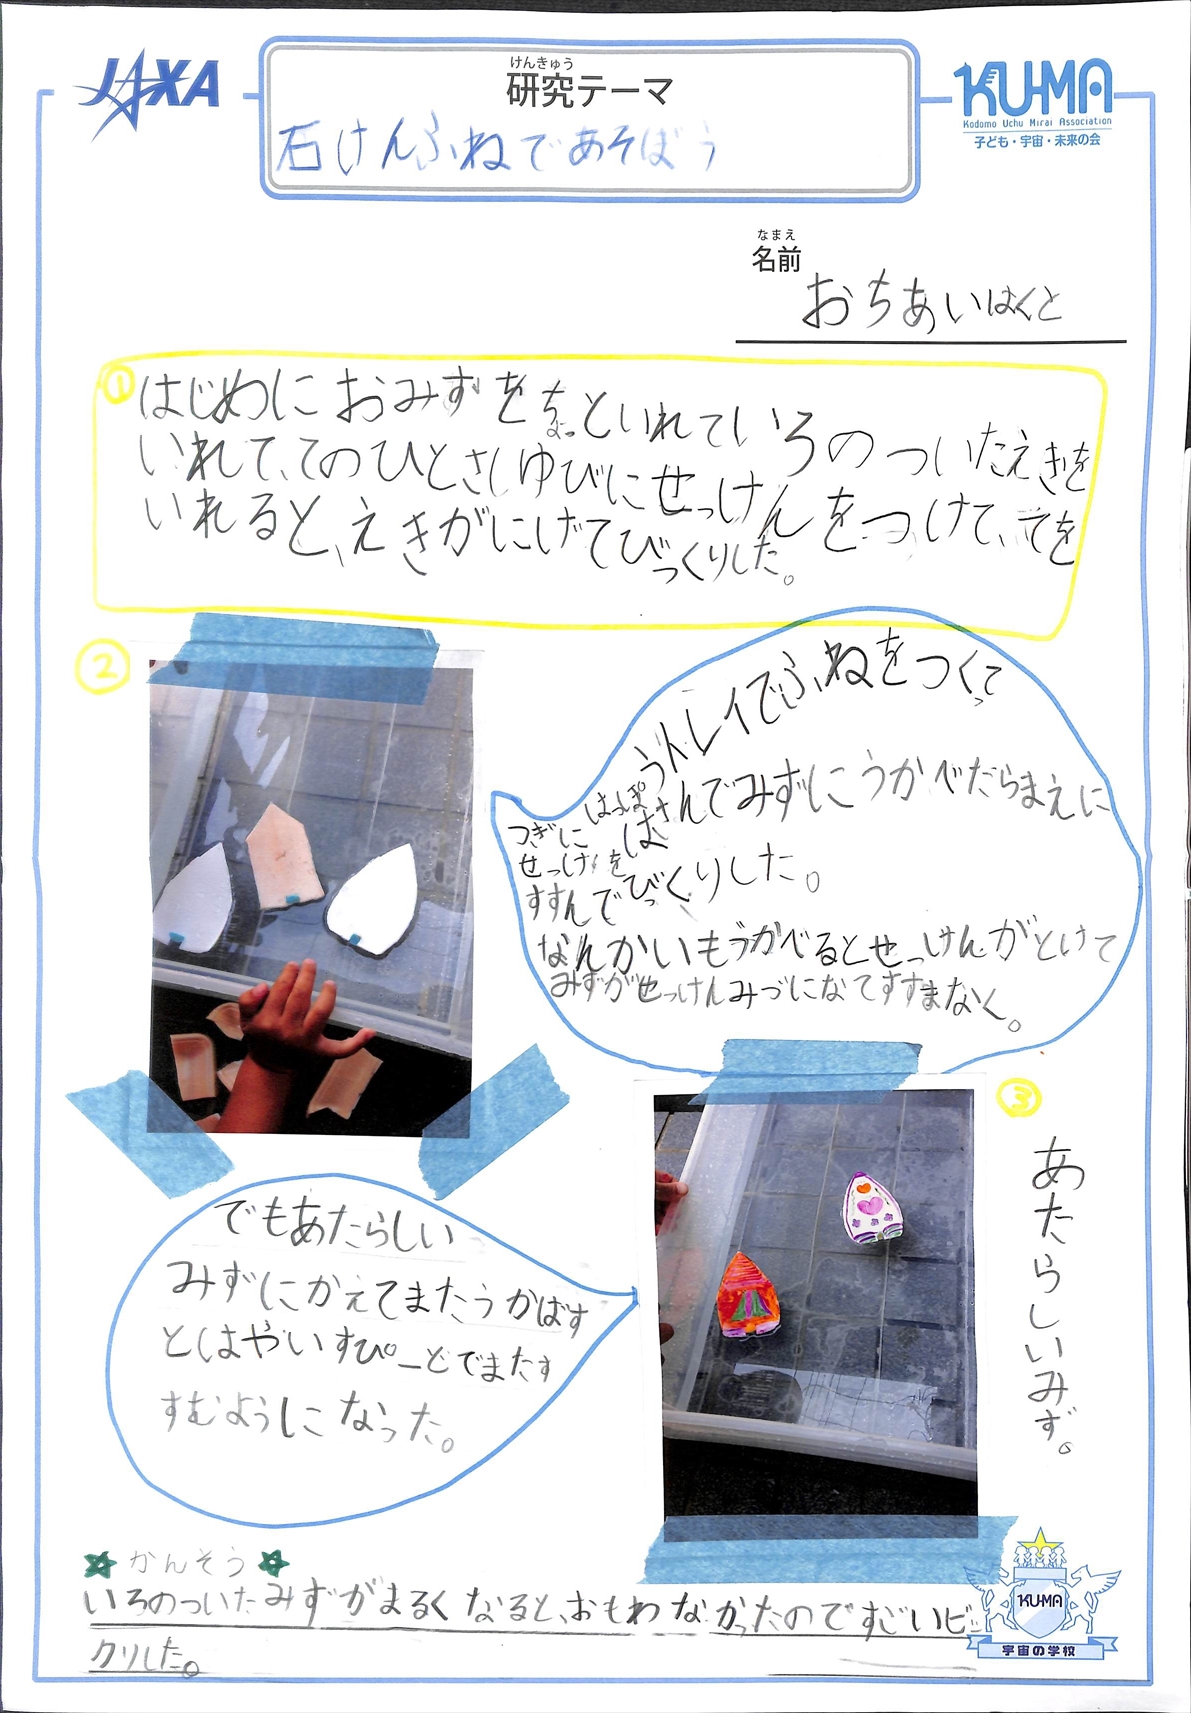 JAXA
けんきゅう
研究テーマ
石けんふねであそぼう
KU-MA
Kodomo Uchu Mirai Association
子ども・宇宙・未来の会
なまえ
名前
おちあいはくと
① はじめにおみずをちょっといれていろのついたえきを
いれて、てのひとさしゆびにせっけんをつけて、てを
いれると、えきがにげてびっくりした。
②
つぎにはっぽうトレイでふねをつくって
せっけんをはさんでみずにうかべたらまえに
すすんでびっくりした。
なんかいもうかべるとせっけんがとけて
みずがせっけんみづになてすすまなく。
でもあたらしい
みずにかえてまたうかばす
とはやいすぴーどでまたす
すむようになった。
③
あたらしいみず。
かんそう
いろのついたみずがまるくなると、おもわなかったのですごいビッ
クリした。
KU-MA
宇宙の学校